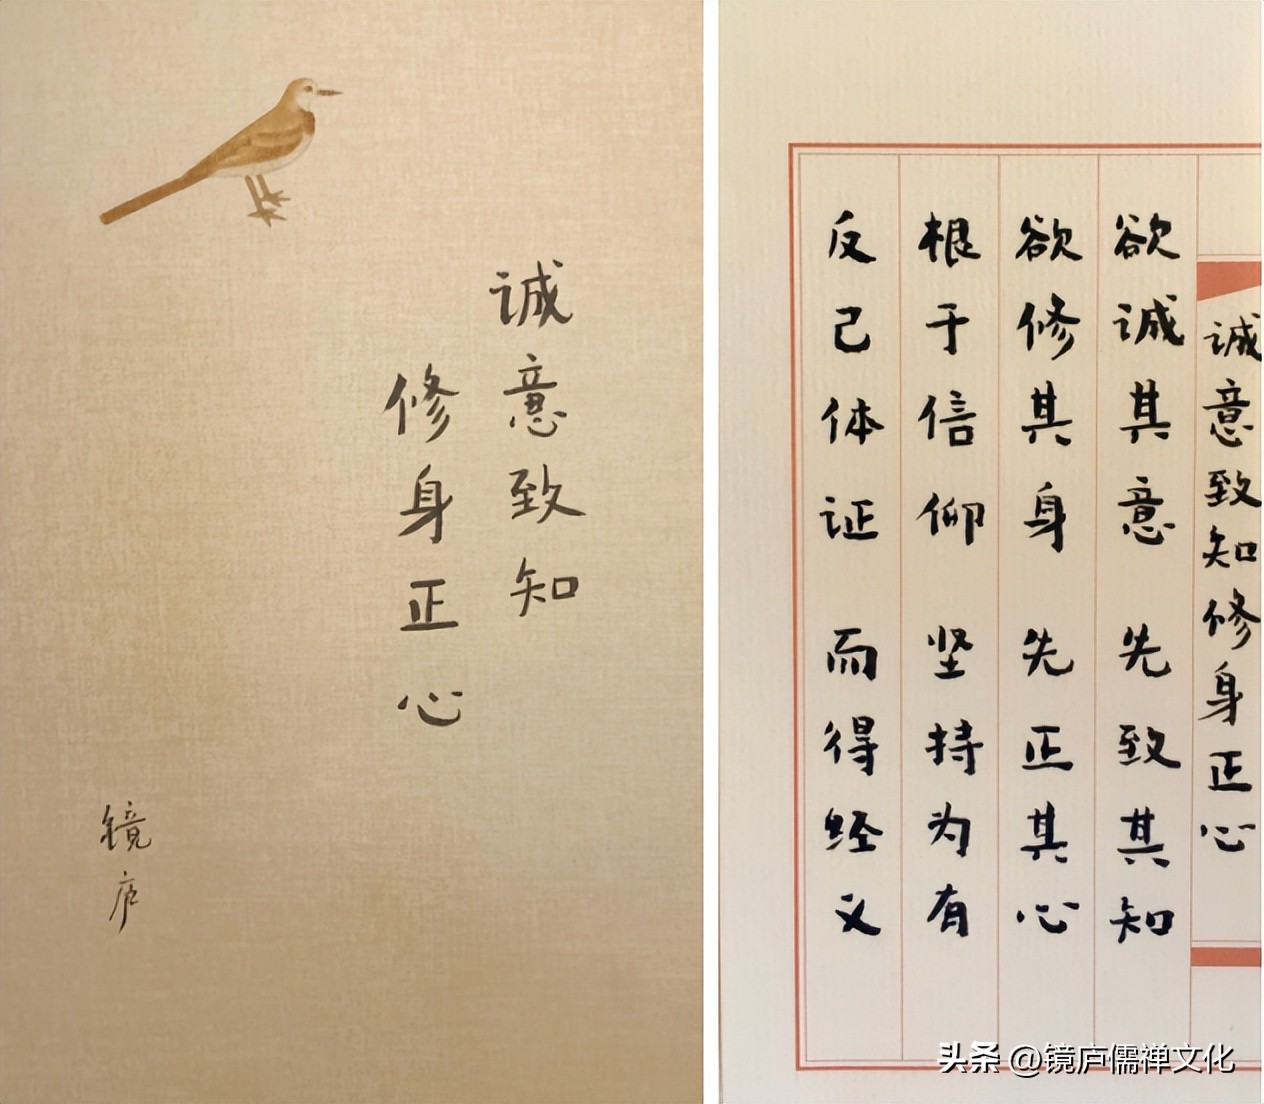 诚意致知
修身正心
镜庐
诚意致知修身正心
欲诚其意 先致其知
欲修其身 先正其心
根于信仰 坚持为有
反己体证 而得经义
头条 @镜庐儒禅文化